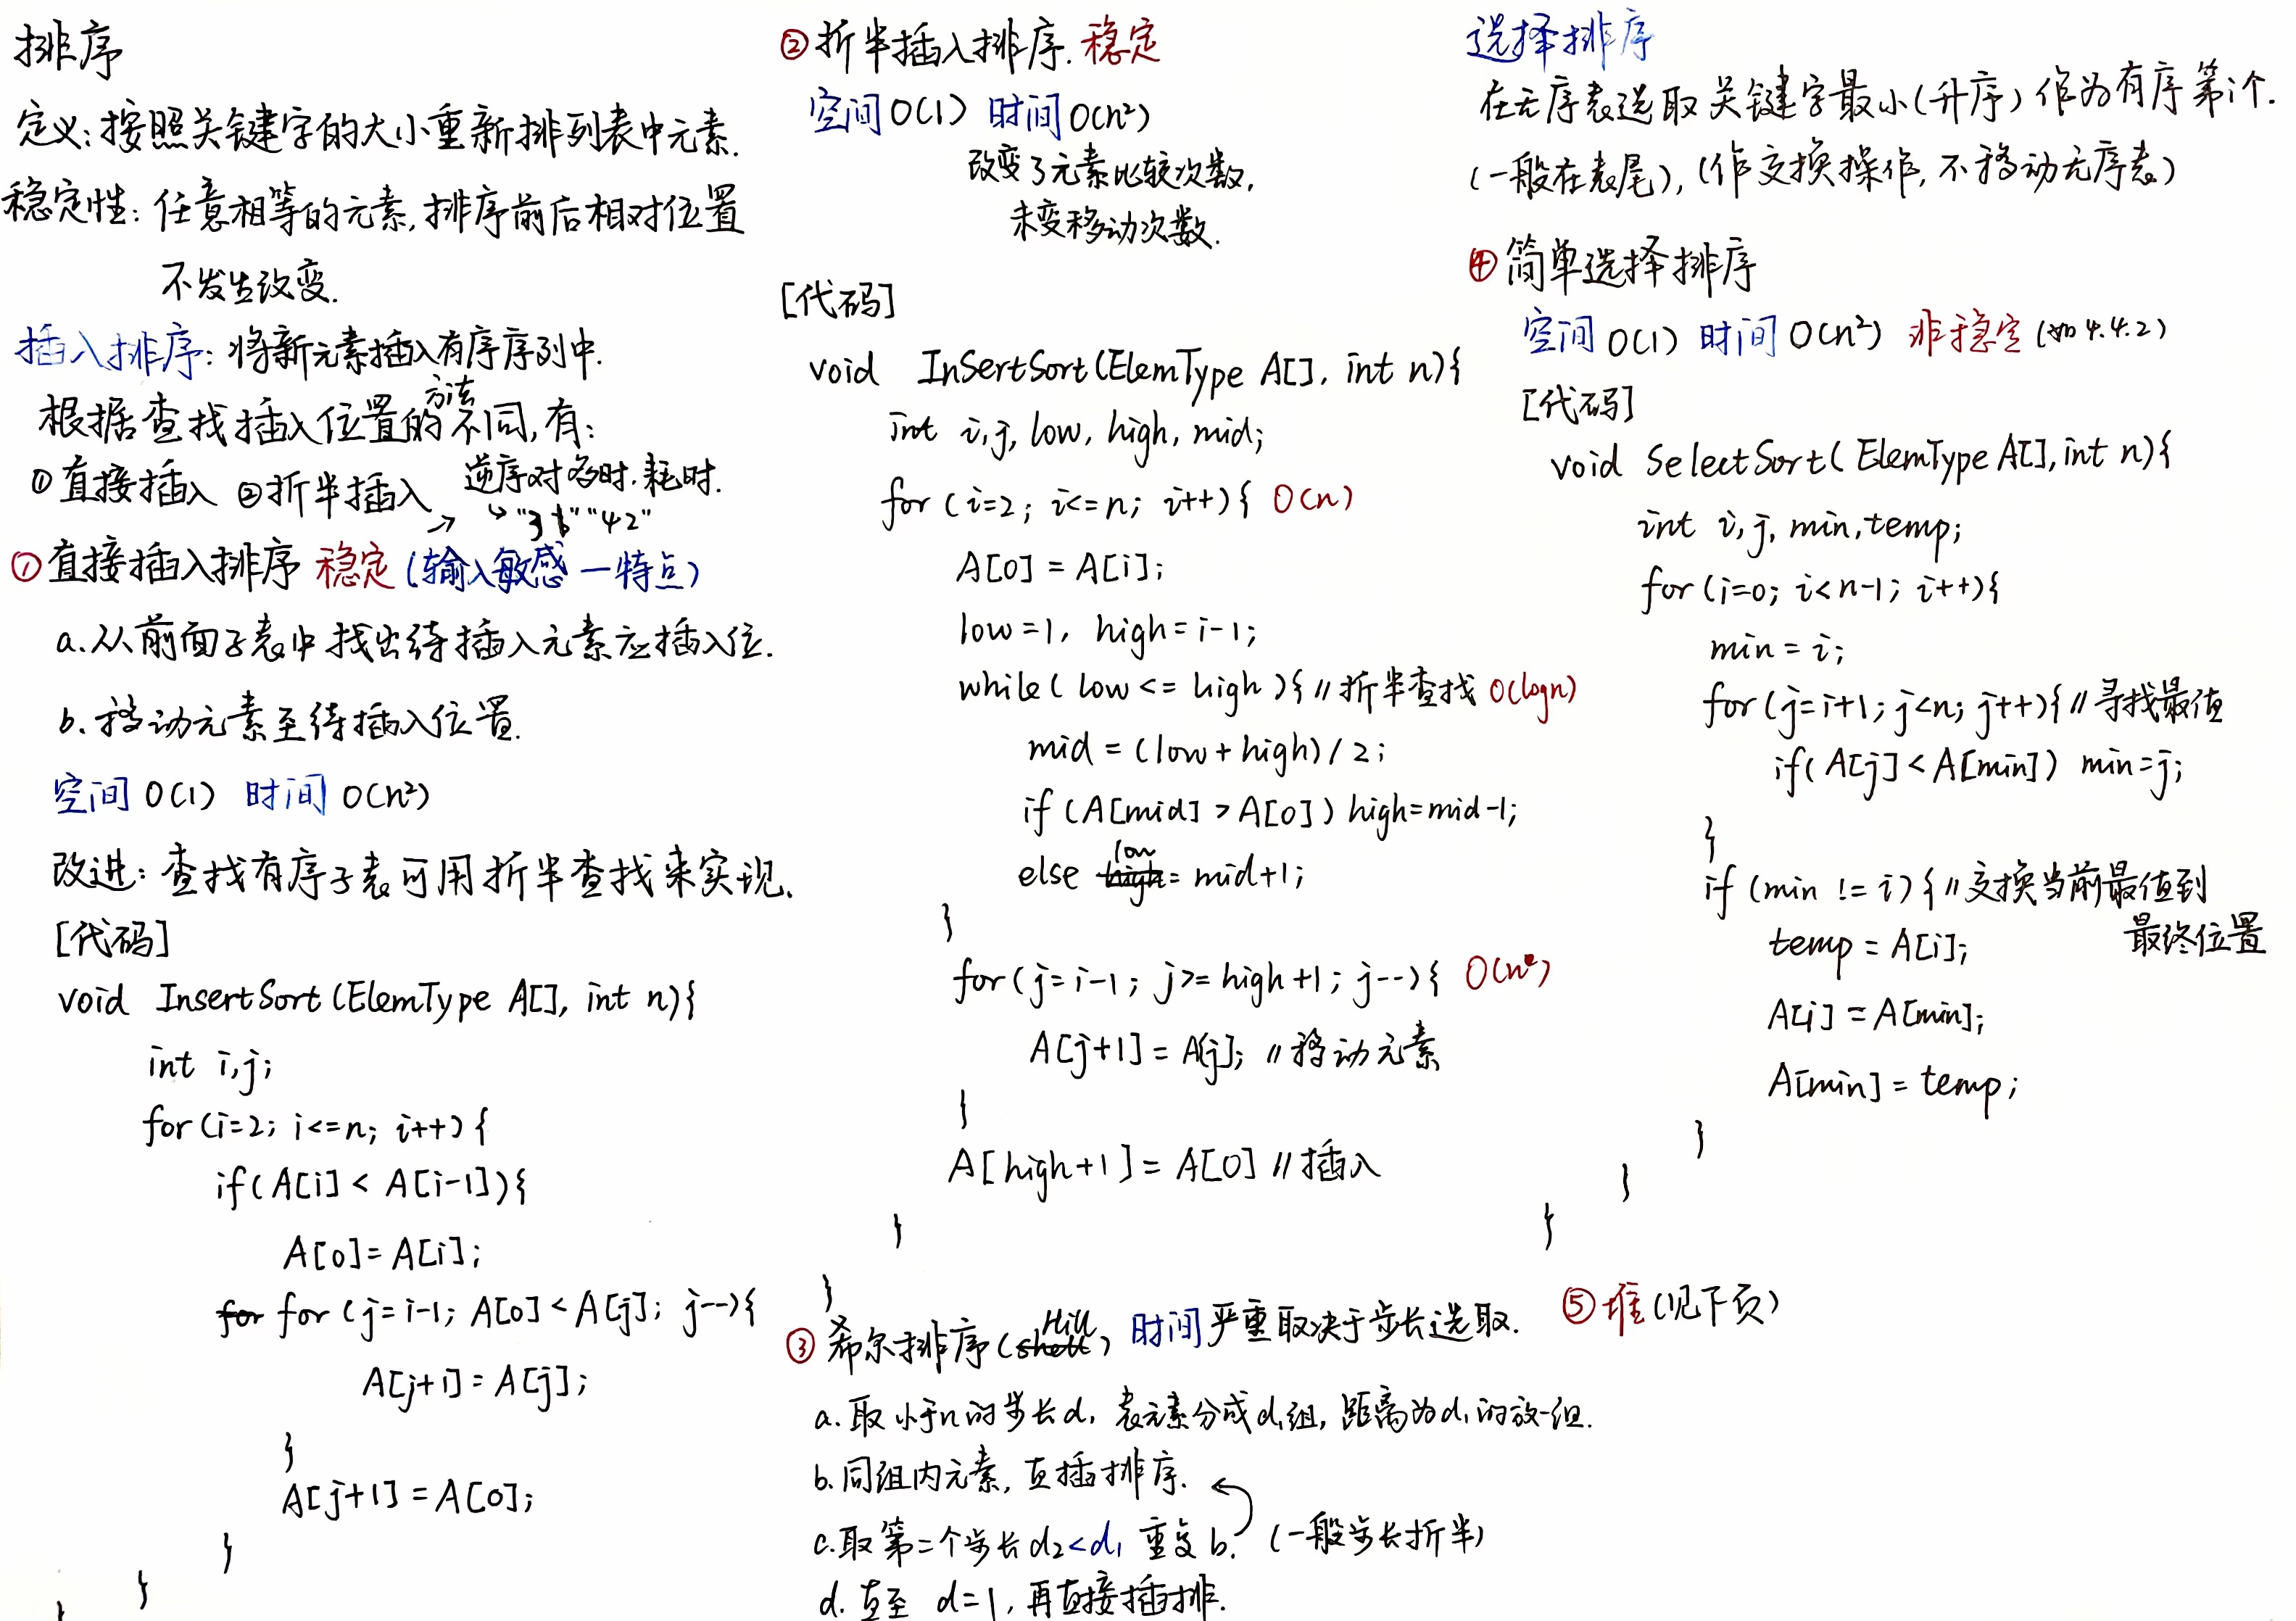 排序
定义:按照关键字的大小重新排列表中元素.
稳定性:任意相等的元素,排序前后相对位置
不发生改变.
插入排序:将新元素插入有序序列中.
根据查找插入位置的方法不同,有:
①直接插入 ②折半插入
逆序对多时.耗时.
→ ↳ "42"
①直接插入排序 稳定(输入敏感—特点)
a.从前面子表中找出待插入元素应插入位.
b.移动元素至待插入位置.
空间 O(1) 时间 O(n²)
改进:查找有序子表可用折半查找来实现.
[代码]
void InsertSort(ElemType A[], int n){
int i,j;
for(i=2; i<=n; i++){
if(A[i] < A[i-1]){
A[0]=A[i];
for for (j=i-1; A[0]<A[j]; j--){
A[j+1]=A[j];
}
A[j+1]=A[0];
}
}
}
②折半插入排序.稳定
空间O(1) 时间O(n²)
改变了元素比较次数,
未变移动次数.
[代码]
void InSertSort(ElemType A[], int n){
int i,j, low, high, mid;
for (i=2; i<=n; i++){ O(n)
A[0] = A[i];
low=1, high=i-1;
while( low <= high ){ //折半查找 O(logn)
mid = (low+high)/2;
if (A[mid] > A[0]) high=mid-1;
else high low = mid+1;
}
for(j=i-1; j>=high+1; j--){ O(n²)
A[j+1] = A[j]; //移动元素
}
A[high+1]= A[0] //插入
}
}
③希尔排序(shell Hill) 时间严重取决于步长选取.
a.取小于n的步长d₁ 表元素分成d₁组,距离为d₁的放一组.
b.同组内元素,直插排序.
c.取第二个步长d₂<d₁ 重复b. (一般步长折半)
d.直至 d=1,再直接插排.
选择排序
在无序表选取关键字最小(升序)作为有序第i个.
(一般在表尾),(作交换操作,不移动无序表)
④简单选择排序
空间 O(1) 时间 O(n²) 非稳定(如4.4.2)
[代码]
void SelectSort( ElemType A[],int n){
int i,j,min,temp;
for(i=0; i<n-1; i++){
min = i;
for(j=i+1; j<n; j++){ //寻找最值
if( A[j]<A[min]) min=j;
}
if (min != i){ //交换当前最值到
最终位置
temp = A[i];
A[i] = A[min];
A[min] = temp;
}
}
}
⑤堆(见下页)